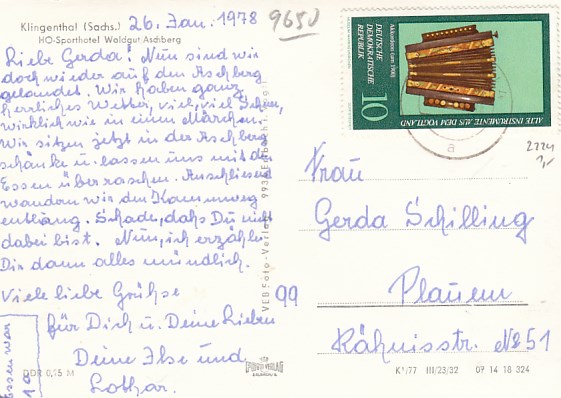 Klingenthal (Sachs.)
HO-Sporthotel Waldgut Aschberg
26. Jan. 1978
9650
Liebe Gerda! Nun sind wir
doch wieder auf den Aschberg
gelandet. Wir haben ganz
herrliches Wetter, viel, viel Schnee,
wirklich wie in einem Märchen.
Wir sitzen jetzt in der Aschberg
schänke u. lassen uns mit d.
Essen überraschen. Anschliessend
wandern wir den Kammweg
entlang. Schade, dahs Du nicht
dabei bist. Nun, ich erzähle
Dir dann alles mündlich.
Viele liebe Grühse
für Dich u. Deine Lieben
Deine Ilse und
Lothar.
Essen war
DDR 0,15 M
VEB Foto-Verlag
99
Akkordeon (um 1900)
DEUTSCHE
DEMOKRATISCHE
REPUBLIK
10
ALTE INSTRUMENTE AUS DEM VOGTLAND
a
2224
1,-
Frau
Gerda Schilling
Plauen
Kähnisstr. No 51
K1/77 III/23/32 07 14 18 324